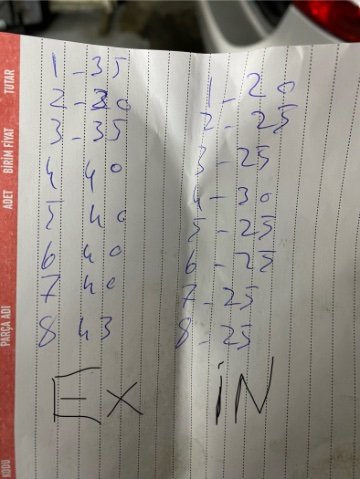 TUTAR
BİRİM FİYAT
ADET
PARÇA ADI
KODU
1 - 35
2 - 30
3 - 35
4 40
5 40
6 40
7 40
8 43
EX
1 - 20
2 - 25
3 - 25
4 - 30
5 - 25
6 - 25
7 - 25
8 - 25
iN